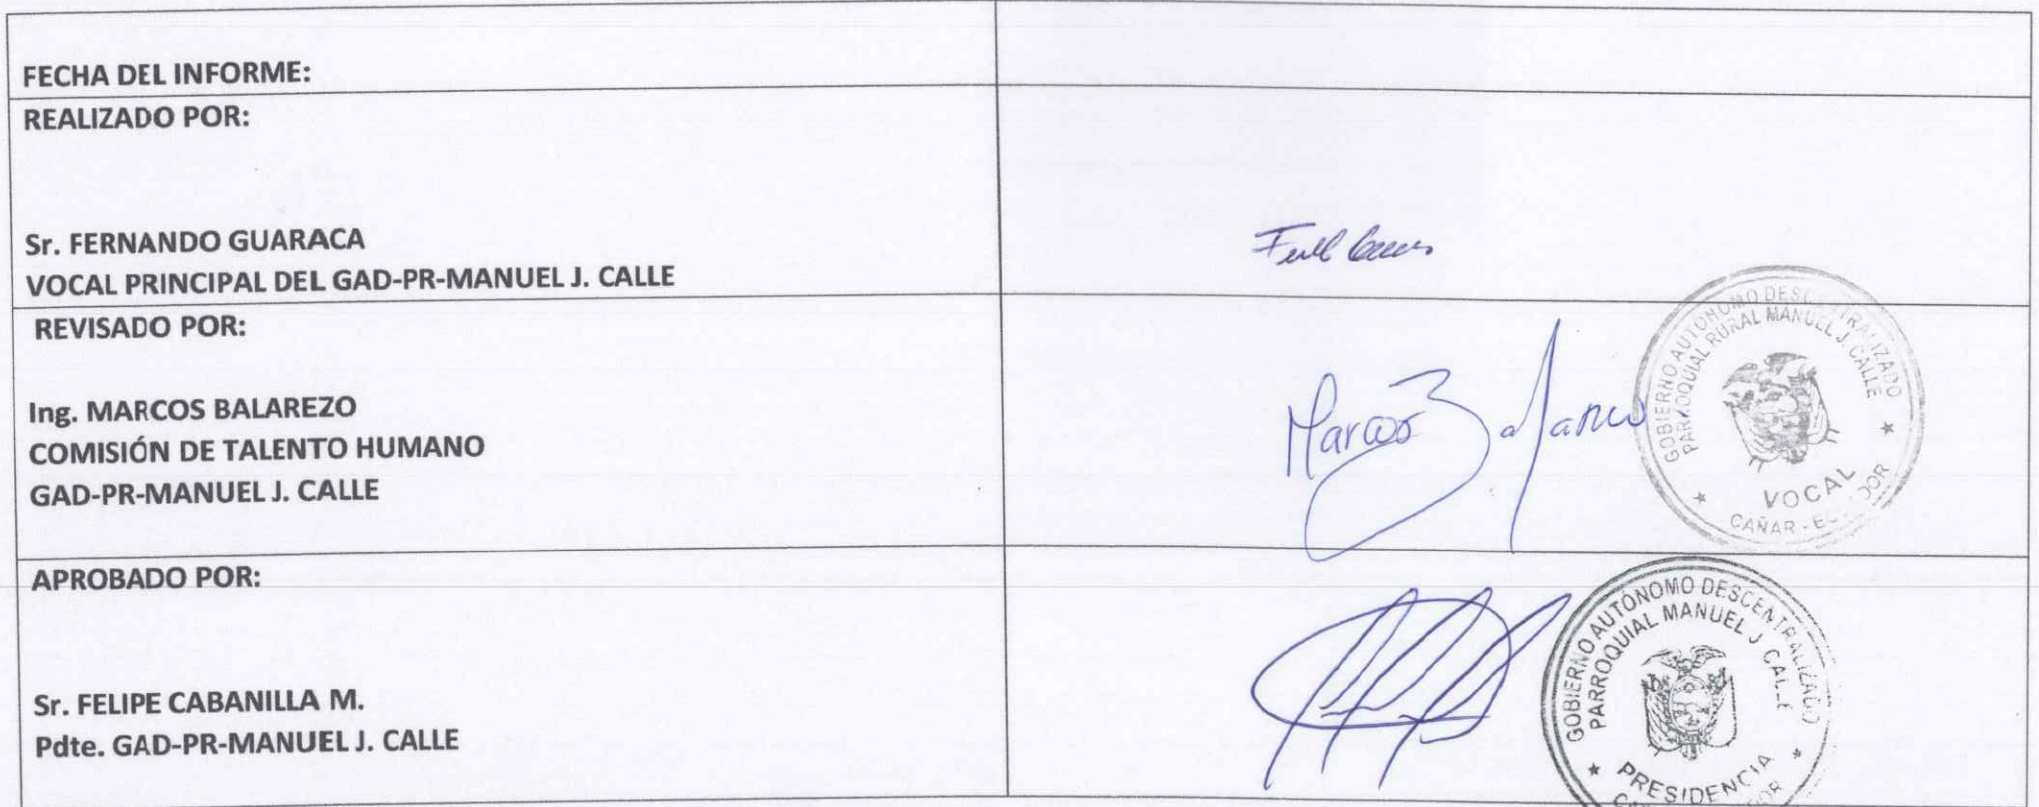 FECHA DEL INFORME:
REALIZADO POR:
Sr. FERNANDO GUARACA
VOCAL PRINCIPAL DEL GAD-PR-MANUEL J. CALLE
REVISADO POR:
Ing. MARCOS BALAREZO
COMISIÓN DE TALENTO HUMANO
GAD-PR-MANUEL J. CALLE
Marcos
GOBIERNO AUTÓNOMO DESCENTRALIZADO
PARROQUIAL RURAL MANUEL J. CALLE
VOCAL
CAÑAR - ECUADOR
APROBADO POR:
Sr. FELIPE CABANILLA M.
Pdte. GAD-PR-MANUEL J. CALLE
GOBIERNO AUTÓNOMO DESCENTRALIZADO
PARROQUIAL MANUEL J CALLE
PRESIDENCIA